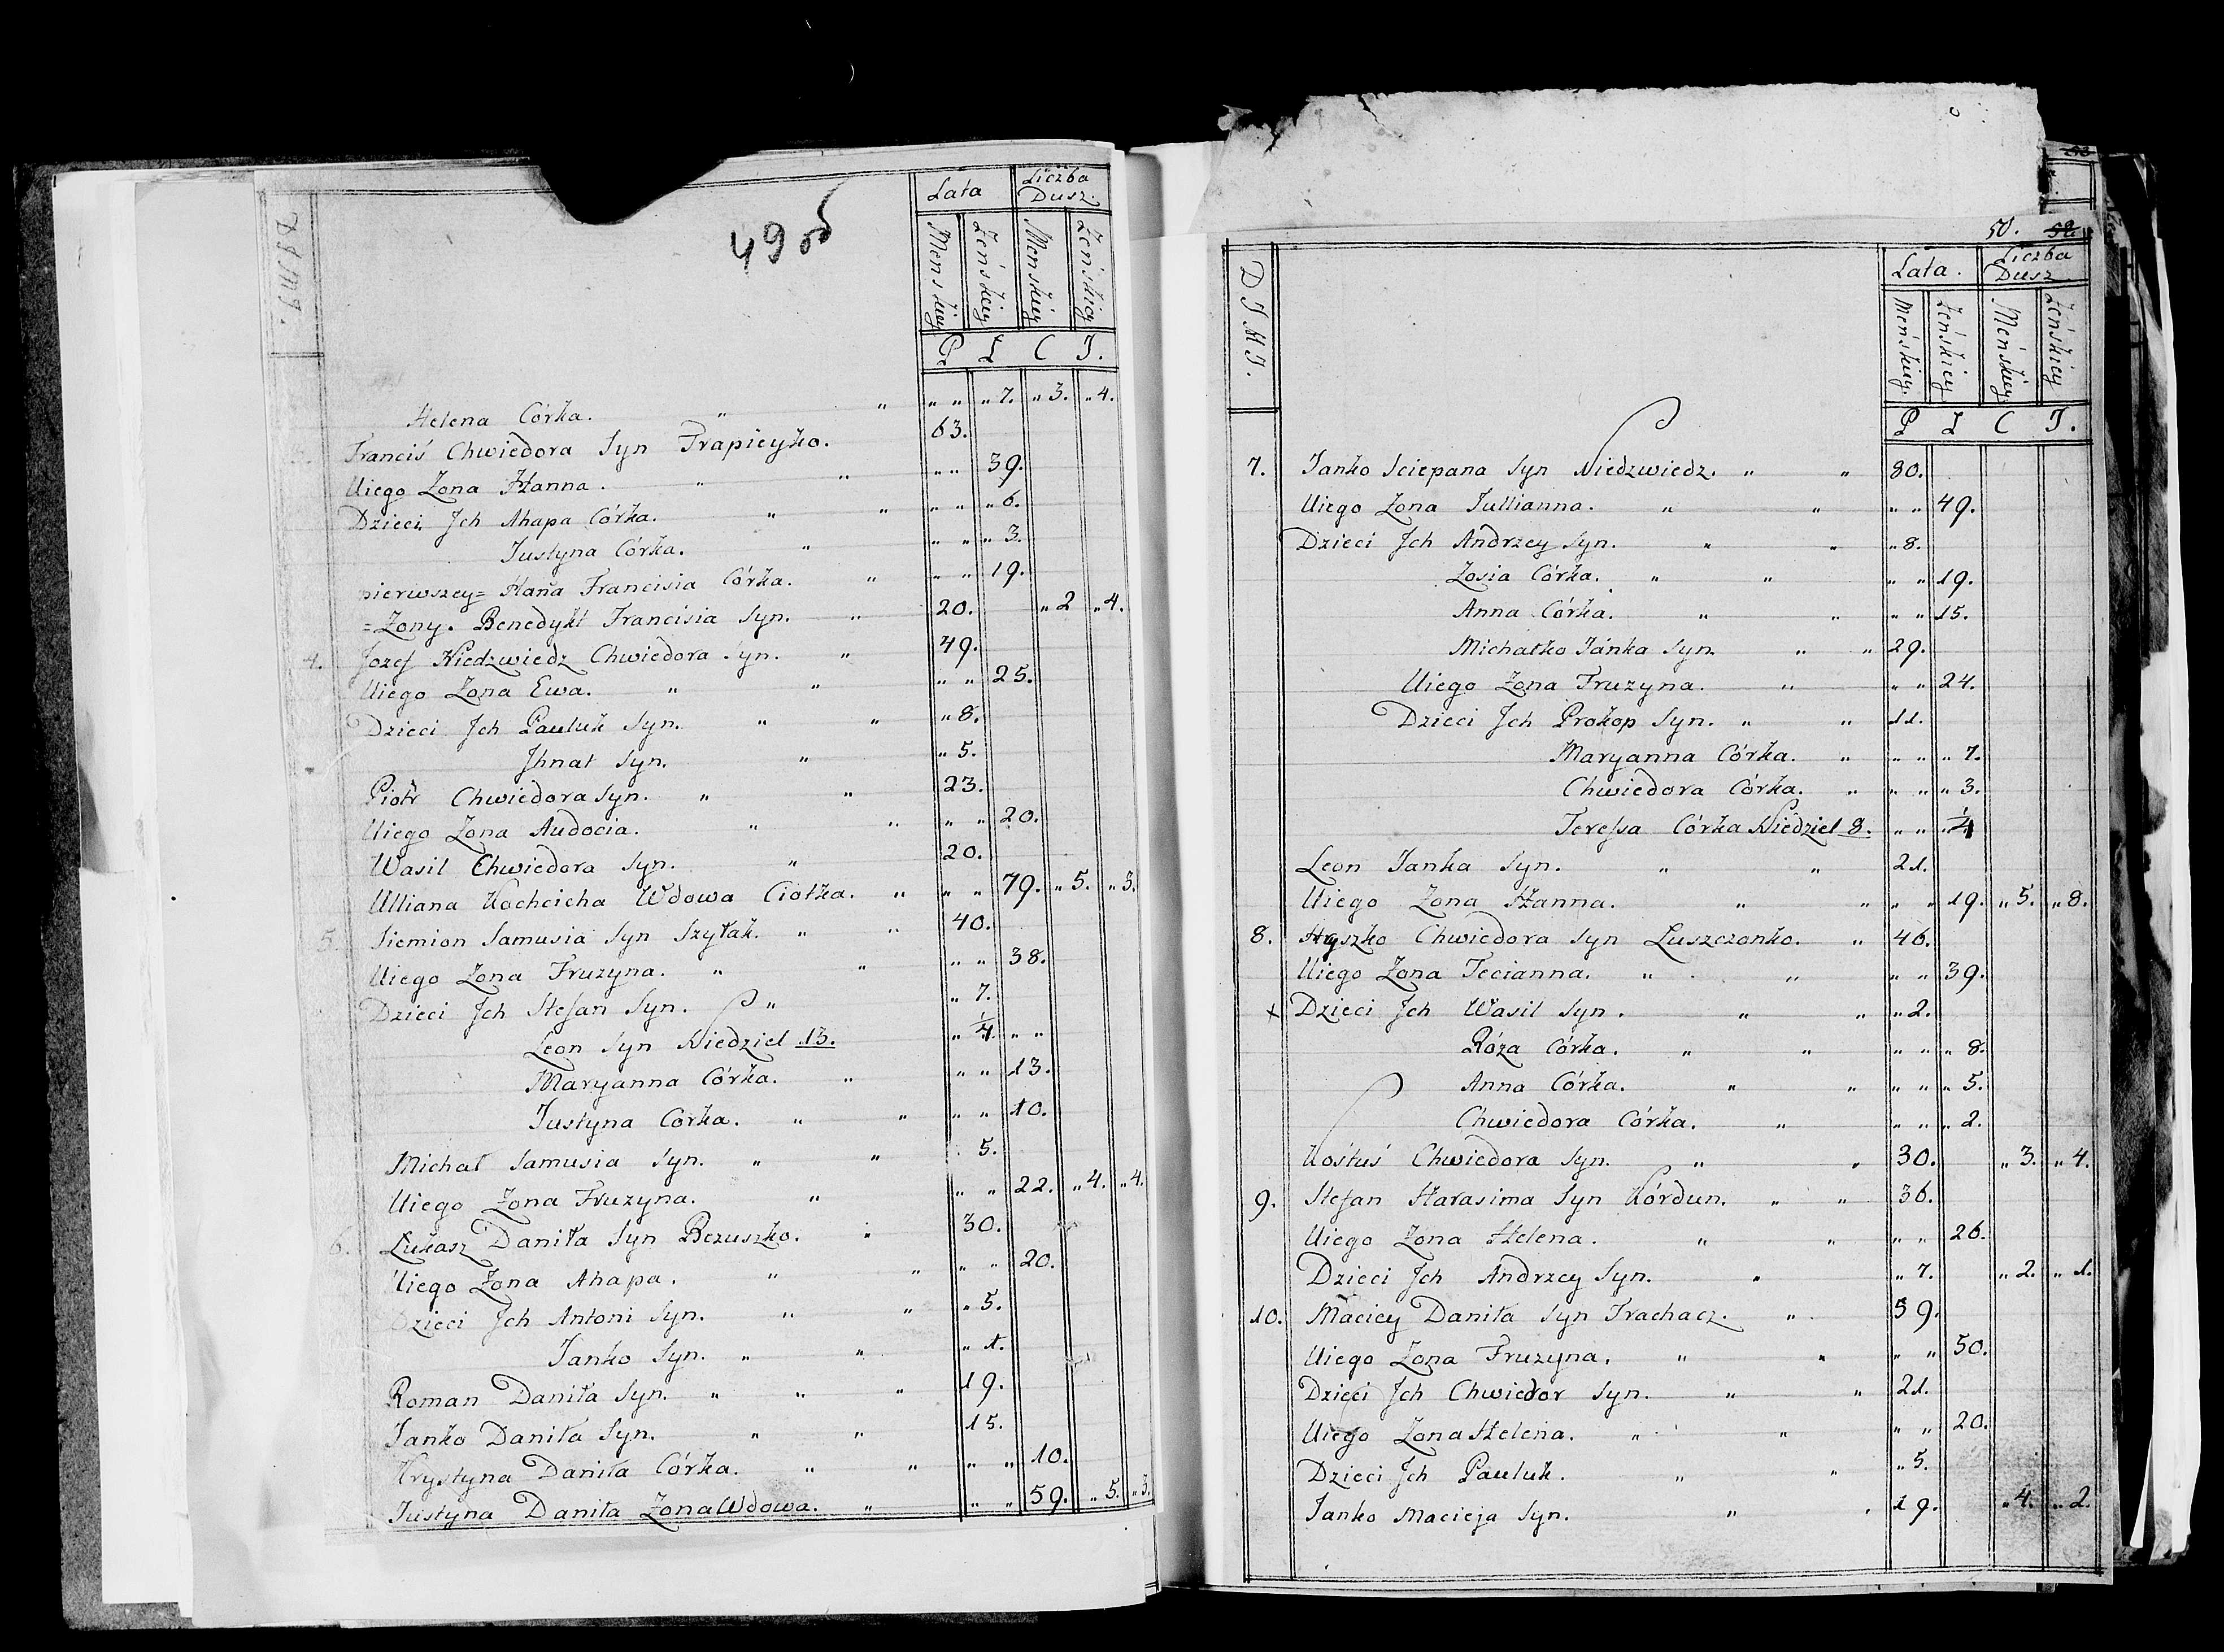 49 об
DYMY.
Lata
Liczba
Dusz.
Męnskiey
Żeńskiey
Męnskiey
Żeńskiey
P Ł C T.
Helena Córka. „ „ „ „ „ 7. „ 3. „ 4.
Franciś Chwiedora Syn Trapieyko. 63.
Uiego Żona Hanna. „ „ „ „ 39.
Dzieci Jch Ahapa Córka. „ „ „ „ „ 6.
Justyna Córka. „ „ „ „ 3.
pierwszey= Hana Francisia Córka. „ „ „ 19.
=Żony. Benedykt Francisia Syn. „ 20. „ 2 „ 4.
4. Jozef Niedzwiedz Chwiedora Syn. „ 49.
Uiego Żona Ewa. „ „ „ „ 25.
Dzieci Jch Pauluk Syn. „ „ „ 8.
Jhnat Syn. „ „ 5.
Piotr Chwiedora Syn. „ „ 23.
Uiego Żona Audocia. „ „ „ „ 20.
Wasil Chwiedora Syn. „ 20.
Ulliana Kochcicha Wdowa Ciotka. „ „ „ 79. „ 5. „ 3.
5. Siemion Samusia Syn Szyłak. „ „ 40.
Uiego Żona Fruzyna. „ „ „ „ 38.
Dzieci Jch Stefan Syn. „ „ 7.
Leon Syn Niedziel 13. „ 1/4. „ „
Maryanna Córka. „ „ „ 13.
Justyna Córka. „ „ „ „ 10.
Michał Samusia Syn. „ „ 5.
Uiego Żona Fruzyna. „ „ „ 22. „ 4. „ 4.
6. Łukasz Daniła Syn Bezuszko. „ 30.
Uiego Żona Ahapa. „ „ „ „ 20.
Dzieci Jch Antoni Syn. „ „ „ 5.
Janko Syn. „ „ „ 1.
Roman Daniła Syn. „ „ „ 19.
Janko Daniła Syn. „ „ 15.
Krystyna Daniła Córka. „ „ „ „ 10.
Justyna Daniła Żona Wdowa. „ „ „ 59. „ 5. „ 3.
50. 52.
DYMY.
Lata.
Liczba
Dusz
Męńskiey.
Żeńskiey
Męńskiey
Żeńskiey
P Ł C T.
7. Janko Sciepana Syn Niedzwiedz. „ „ 80.
Uiego Żona Jullianna. „ „ „ „ 49.
Dzieci Jch Andrzey Syn. „ „ „ 8.
Zosia Córka. „ „ „ „ 19.
Anna Córka. „ „ „ „ 15.
Michałko Janka Syn. „ „ 29.
Uiego Żona Fruzyna. „ „ „ 24.
Dzieci Jch Prokop Syn. „ „ 11.
Maryanna Córka. „ „ „ „ 7.
Chwiedora Córka. „ „ „ „ 3.
Teressa Córka Niedziel 8. „ „ „ 1/4
Leon Janka Syn. „ „ 21.
Uiego Żona Hanna. „ „ „ „ 19. „ 5. „ 8.
8. Hryszko Chwiedora Syn Łuszczonko. „ 46.
Uiego Żona Tecianna. „ „ „ „ 39.
x Dzieci Jch Wasil Syn. „ „ „ 2.
Róża Córka. „ „ „ „ „ 8.
Anna Córka. „ „ „ „ „ 5.
Chwiedora Córka. „ „ „ „ 2.
Kóstuś Chwiedora Syn. „ „ 30. „ 3. „ 4.
9. Stefan Harasima Syn Kórdun. „ „ 36.
Uiego Żona Helena. „ „ „ „ 26.
Dzieci Jch Andrzey Syn. „ „ 7. „ 2. „ 1.
10. Maciey Daniła Syn Trachacz. „ 59.
Uiego Żona Fruzyna. „ „ „ „ 50.
Dzieci Jch Chwiedor Syn. „ „ 21.
Uiego Żona Helena. „ „ „ „ 20.
Dzieci Jch Pauluk. „ „ „ 5.
Janko Macieja Syn. „ „ 19. „ 4. „ 2.